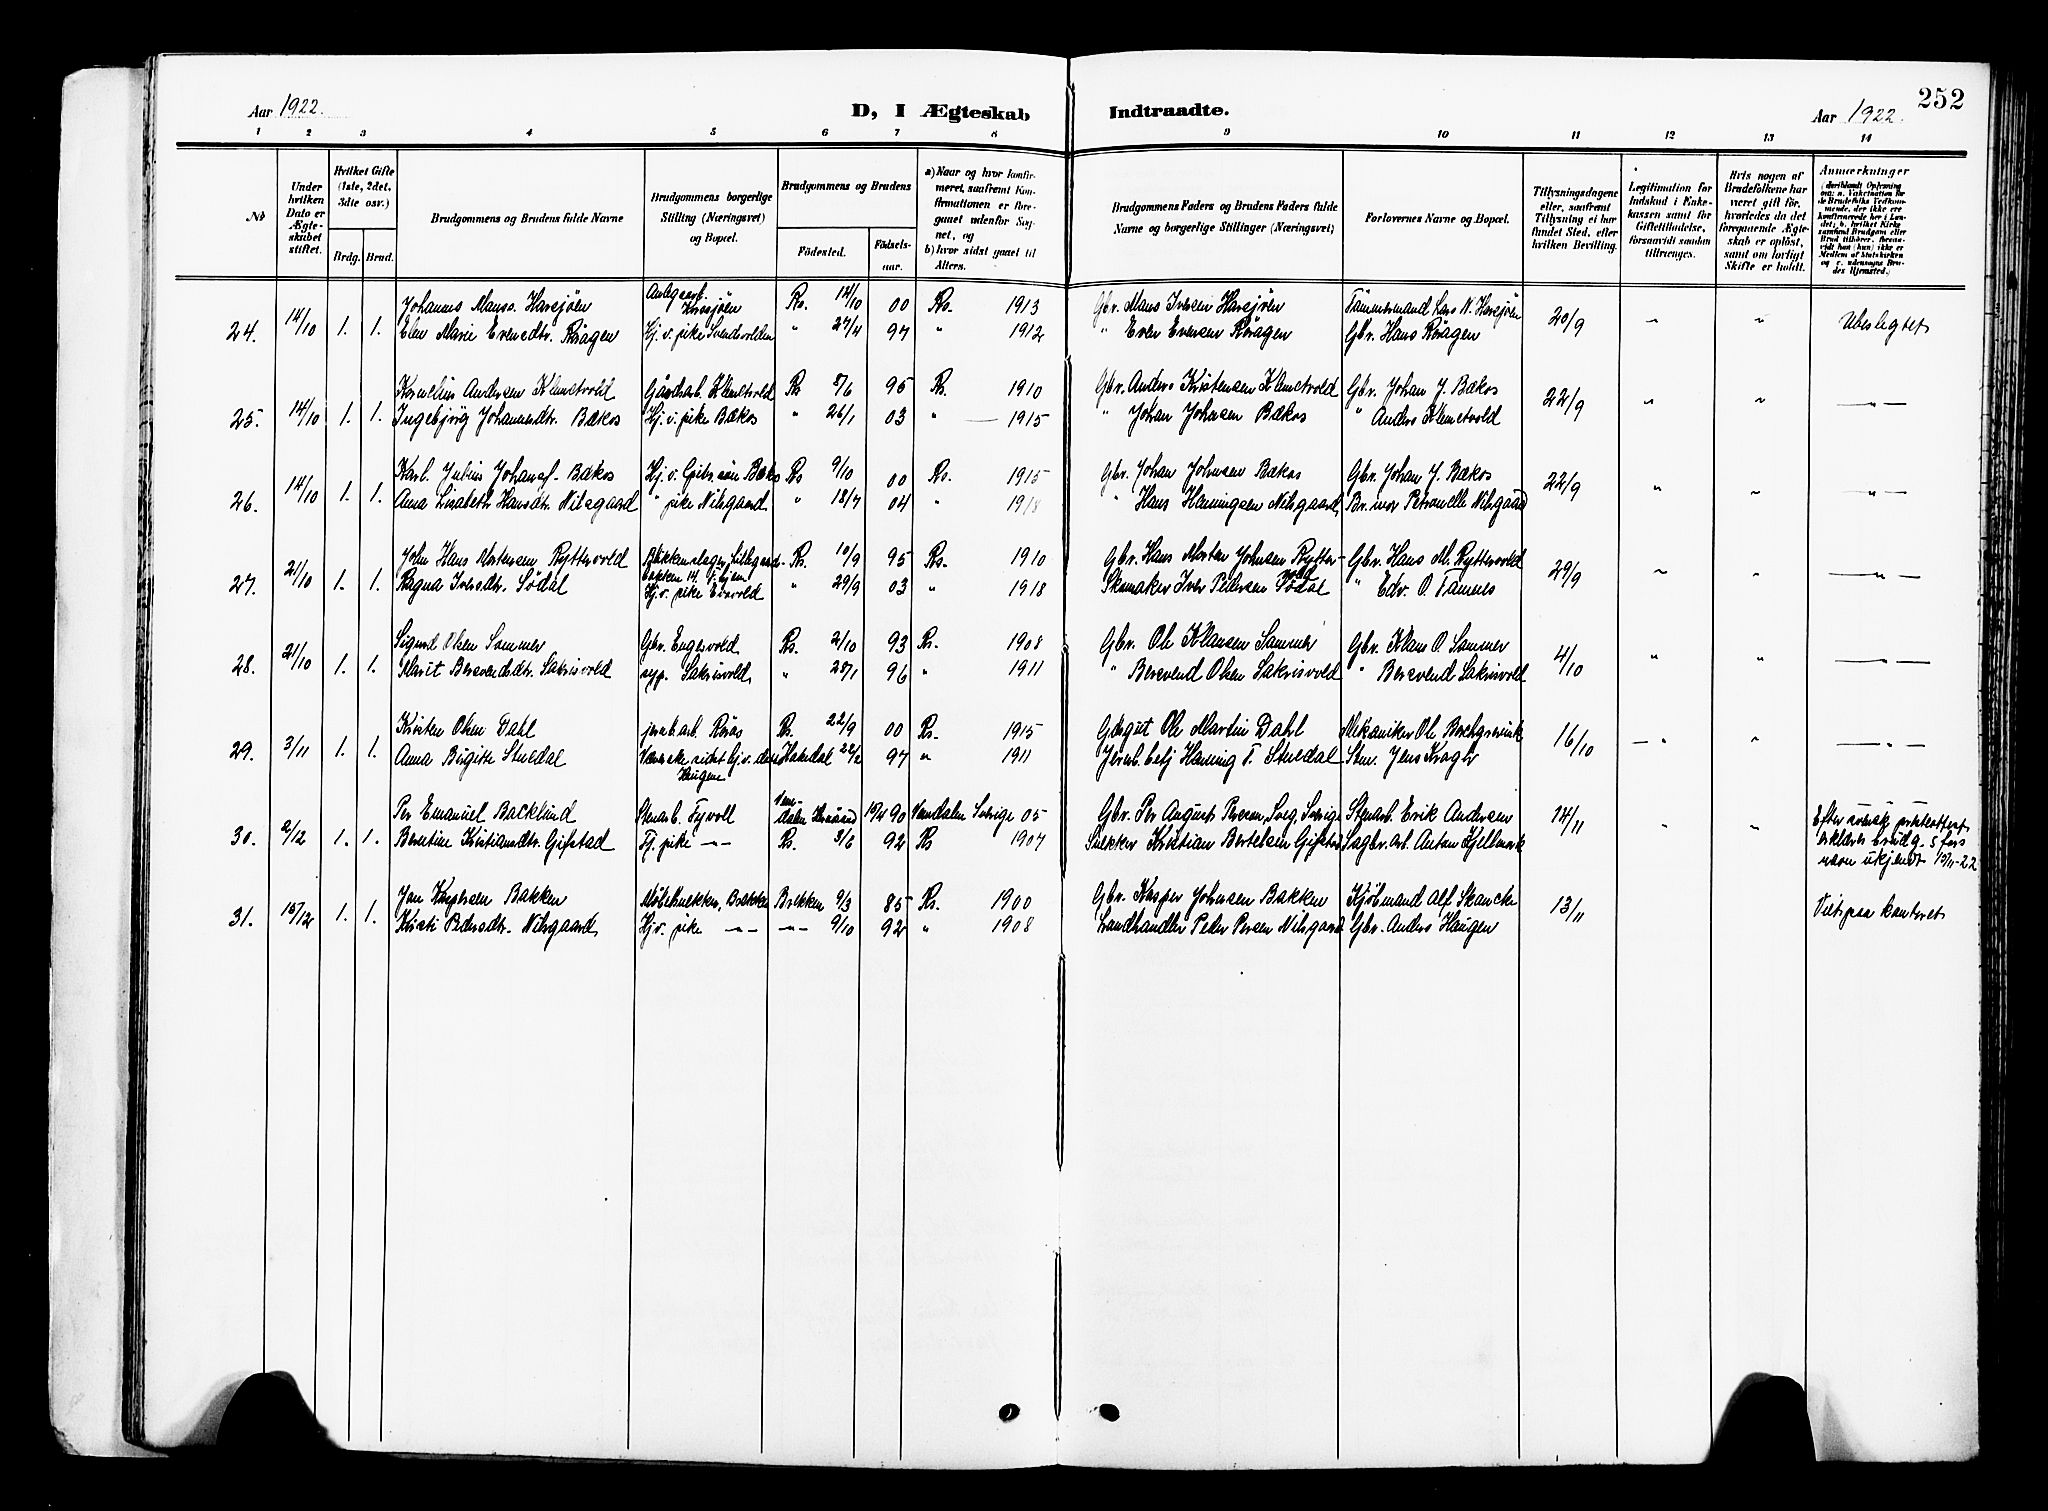 Aar 1922.
D, I Ægteskab Indtraadte.
Aar 1922.
252
1 2 3 4 5 6 7 8 9 10 11 12 13 14
No
Under hvilken Dato er Ægteskabet stiftet.
Hvilket Gifte (1ste, 2det, 3die osv.)
Brdg. Brud.
Brudgommens og Brudens fulde Navne
Brudgommens borgerlige Stilling (Næringsvei) og Bopæl.
Brudgommens og Brudens
Födested. Födselsaar.
a) Naar og hvor konfirmeret, saafremt Konfirmationen er foregaaet udenfor Sognet, og
b) hvor sidst gaaet til Alters.
Brudgommens Faders og Brudens Faders fulde Navne og borgerlige Stillinger (Næringsvei)
Forlovernes Navne og Bopæl.
Tillysningsdagene eller, saafremt Tillysning ei har fundet Sted, efter hvilken Bevilling.
Legitimation for Indskud i Enkekassen samt for Giftetilladelse, forsaavidt saadan tiltrænges.
Hvis nogen af Brudefolkene har været gift før, hvorledes da det foregaaende Ægteskab er opløst, samt om lovligt Skifte er holdt.
Anmærkninger
24. 14/10 1. 1. Johannes Manss. Harsjöen Harsjöen Rs. 14/10 00 Rs. 1913 Gbr. Mans Iversen Harsjöen Tömmermand Lars N. Harsjöen 20/9 " " Ubeslegtet
Elen Marie Evensdtr. Röragen Hj. v. pike Svendsvolden " 27/4 97 " 1912 " Even Evensen Röragen Gbr. Hans Röragen
25. 14/10 1. 1. Kornelius Andersen Klemetvold Gaardsarb. Klemetvold Rs 8/6 95 Rs. 1910 Gbr. Anders Kristensen Klemetvold Gbr. Johan J. Bækos 22/9 " " — " —
Ingebjörg Johannesdtr. Bækos Hj. v. pike Bækos " 26/1 03 " — 1915 " Johan Johnsen Bækos " Anders Klemetvold
26. 14/10 1. 1. Karl Julius Johans. Bækos Hj. v. Gbr. sön Bækos Rs 9/10 00 Rs. 1915 Gbr. Johan Johnsen Bækos Gbr. Johan J. Bækos 22/9 " " — " —
Anna Lisabeth Hansdtr. Nilsgaard " pike Nilsgaard " 18/7 04 " 1918 " Hans Henningsen Nilsgaard Br. mor Petronelle Nilsgaard
27. 21/10 1. 1. John Hans Mortensen Ryttervold Rs. 10/9 95 Rs. 1910 Gbr. Hans Morten Johnsen Ryttervold Gbr. Hans M. Ryttervold 29/9 " " — " —
Ragna Iversdtr. Södal Hj. v. pike Evavold " 29/9 03 " 1918 Skomaker Iver Pedersen Södal " Edv. O. Tamnes
28. 21/10 1. 1. Sigurd Olsen Sommer Gbr. Engesvold Rs. 2/10 93 Rs. 1908 Gbr. Ole Klausen Sommer Gbr. Klaus O. Sommer 4/10 " " — " —
Marit Berevendsdtr. Sakrisvold syp. Sakrisvold " 28/1 96 " 1911 " Berevend Olsen Sakrisvold " Berevend Sakrisvold
29. 3/11 1. 1. Kristen Olsen Dahl jernb. arb. Röros Rs. 22/9 00 Rs. 1915 Ole Martin Dahl Mekaniker Ole Borchgrevink 16/10 — " " — " —
Anna Birgitte Stuedal Haugene Hakedal 22/2 97 " 1911 Jernb. betj Henning T. Stuedal Stm. Jens Kragh
30. 2/12 1. 1. Per Emanuel Backlund Stenarb. Tyvoll 15/4 90 Vemdalen Sverige 05 Gbr. Per August Persen, Sveg, Sverige Stenarb. Erik Andersen 14/11 " " Efter svensk prestattest erklæres brudg.s fars navn ukjendt 15/11-22
Berntine Kristiansdtr. Gifstad Tj. pike — " — Rs. 3/6 92 Rs 1907 Snekker Kristian Bertelsen Gifstad Sagbr. arb. Anton Kjellmark
31. 15/12 1. 1. Jon Kaspersen Bakken Möbelsnekker, Brekken Brekken 9/3 85 Rs. 1900 Gbr. Kasper Johnsen Bakken Kjöbmand Alf Skancke 13/11 Viet paa kontoret
Kirsti Pedersdtr. Nilsgaard Hj. v. pike — " — — " — 9/10 92 " 1908 Landhandler Peder Persen Nilsgaard Gbr. Anders Haugen